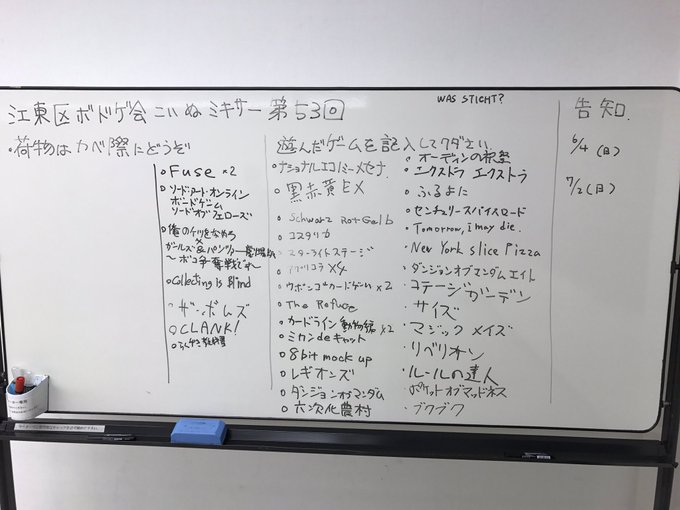 江東区ボドゲ会こいぬミキサー第53回
WAS STICHT?
告知.
・荷物はカベ際にどうぞ
遊んだゲームを記入してクダさい
6/4(日)
7/2(日)
Fuse ×2
ソードアート・オンライン
ボードゲーム
ソードオブフェローズ
俺のケツをなめろ
ガールズ&パンツァー
〜ボコ争奪戦です〜
Collecting is Blind
ザ・ボムズ
CLANK!
ナショナルエコノミーメセナ
黒赤黄EX
Schwarz Rot Gelb
コスタリカ
スターライトステージ
アグリコラ ×4
ウボンゴカードゲーム ×2
The Refuge
カードライン動物編 ×2
ミカンdeキャット
8bit mock up
レギオンズ
ダンジョンオブマンダム
六次化農村
オーディンの祝祭
エクストラ エクストラ
・ふるよに
・センチュリースパイスロード
・Tomorrow, i may die.
・New York slice Pizza
・ダンジョンオブマンダムエイト
・コテージガーデン
・サイズ
・マジック メイズ
・リベリオン
・ルールの達人
・ポケットオブマッドネス
・ブクブク